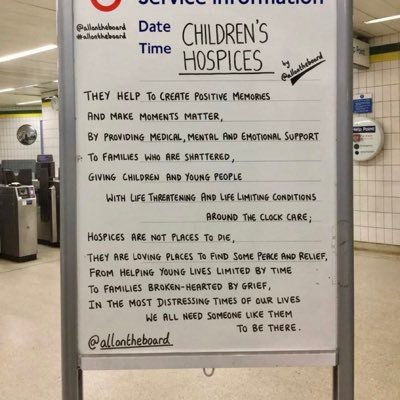 Service Information
@allontheboard
#allontheboard
Date
Time
CHILDREN'S
HOSPICES
by
@allontheboard
THEY HELP TO CREATE POSITIVE MEMORIES
AND MAKE MOMENTS MATTER,
BY PROVIDING MEDICAL, MENTAL AND EMOTIONAL SUPPORT
TO FAMILIES WHO ARE SHATTERED,
GIVING CHILDREN AND YOUNG PEOPLE
WITH LIFE THREATENING AND LIFE LIMITING CONDITIONS
AROUND THE CLOCK CARE;
HOSPICES ARE NOT PLACES TO DIE,
THEY ARE LOVING PLACES TO FIND SOME PEACE AND RELIEF,
FROM HELPING YOUNG LIVES LIMITED BY TIME
TO FAMILIES BROKEN-HEARTED BY GRIEF,
IN THE MOST DISTRESSING TIMES OF OUR LIVES
WE ALL NEED SOMEONE LIKE THEM
TO BE THERE.
@allontheboard
Help Point